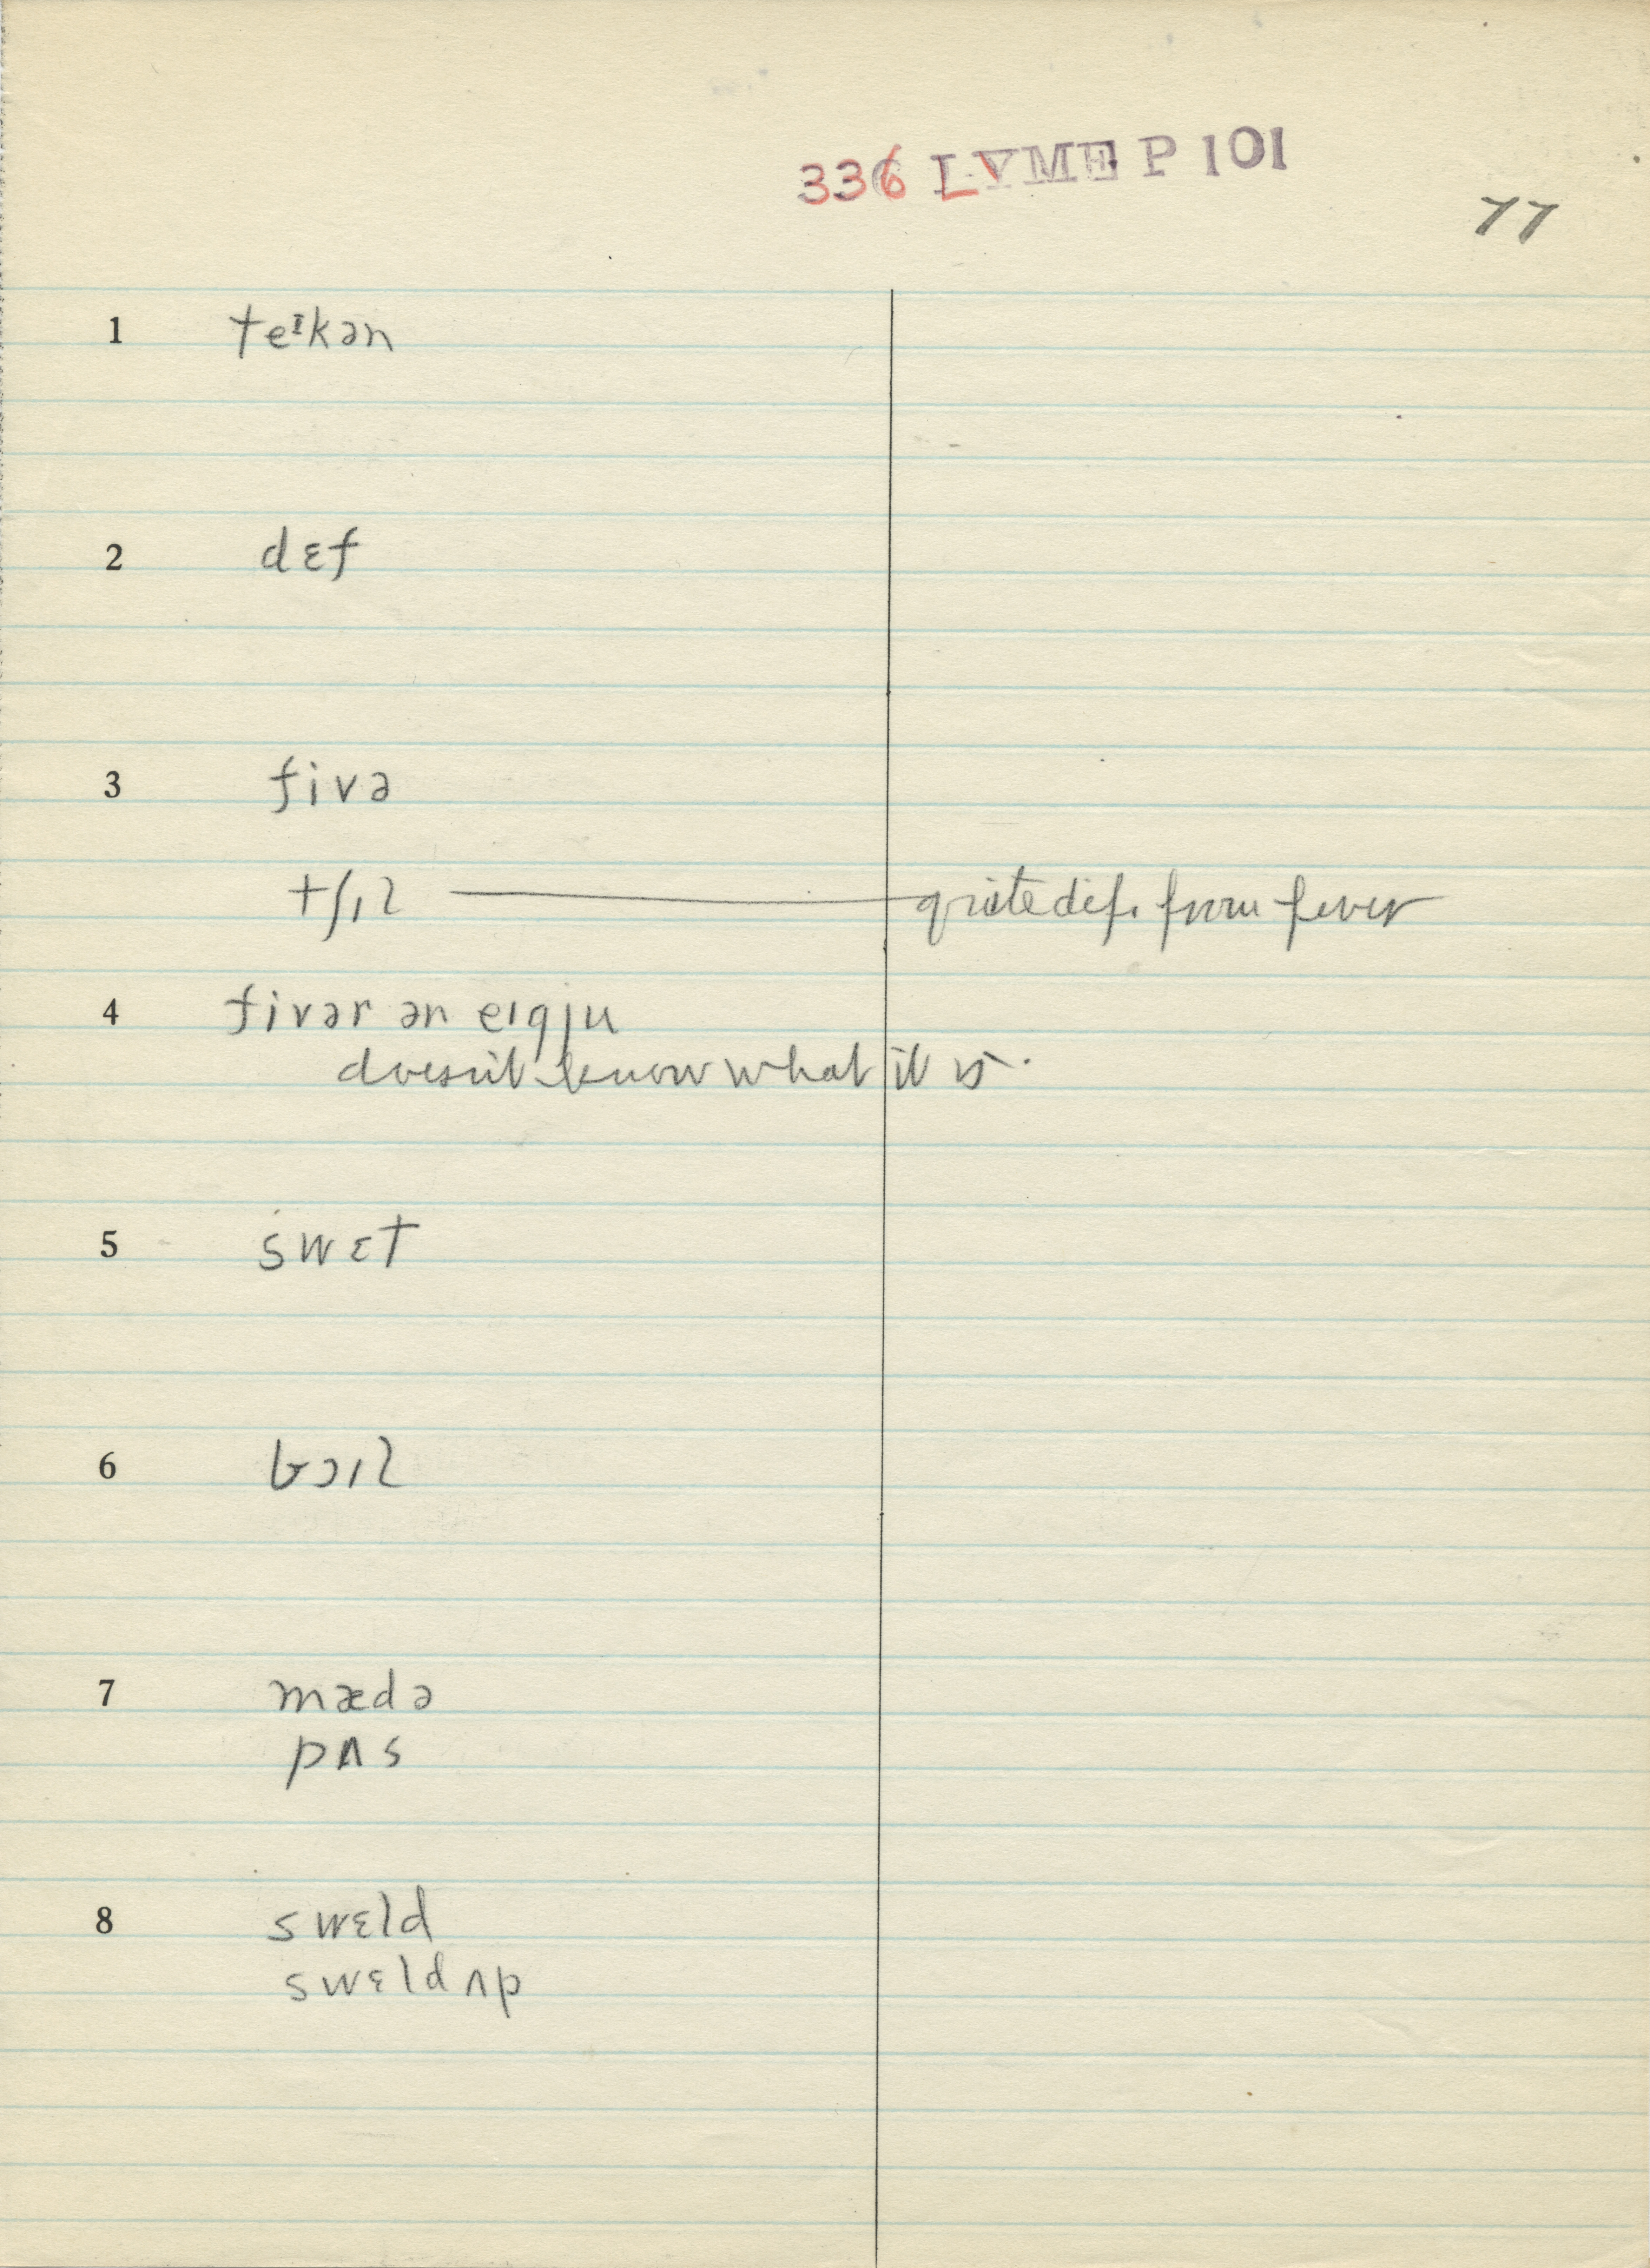 336 LYME P 101
77
1 teᶦkən
2 dɛf
3 fivə
tʃıl quite dif. from fever
4 fivər ən eıgju
doesn't know what it is.
5 swɛt
6 bɔıl
7 mædə
pʌs
8 swɛld
swɛld ʌp